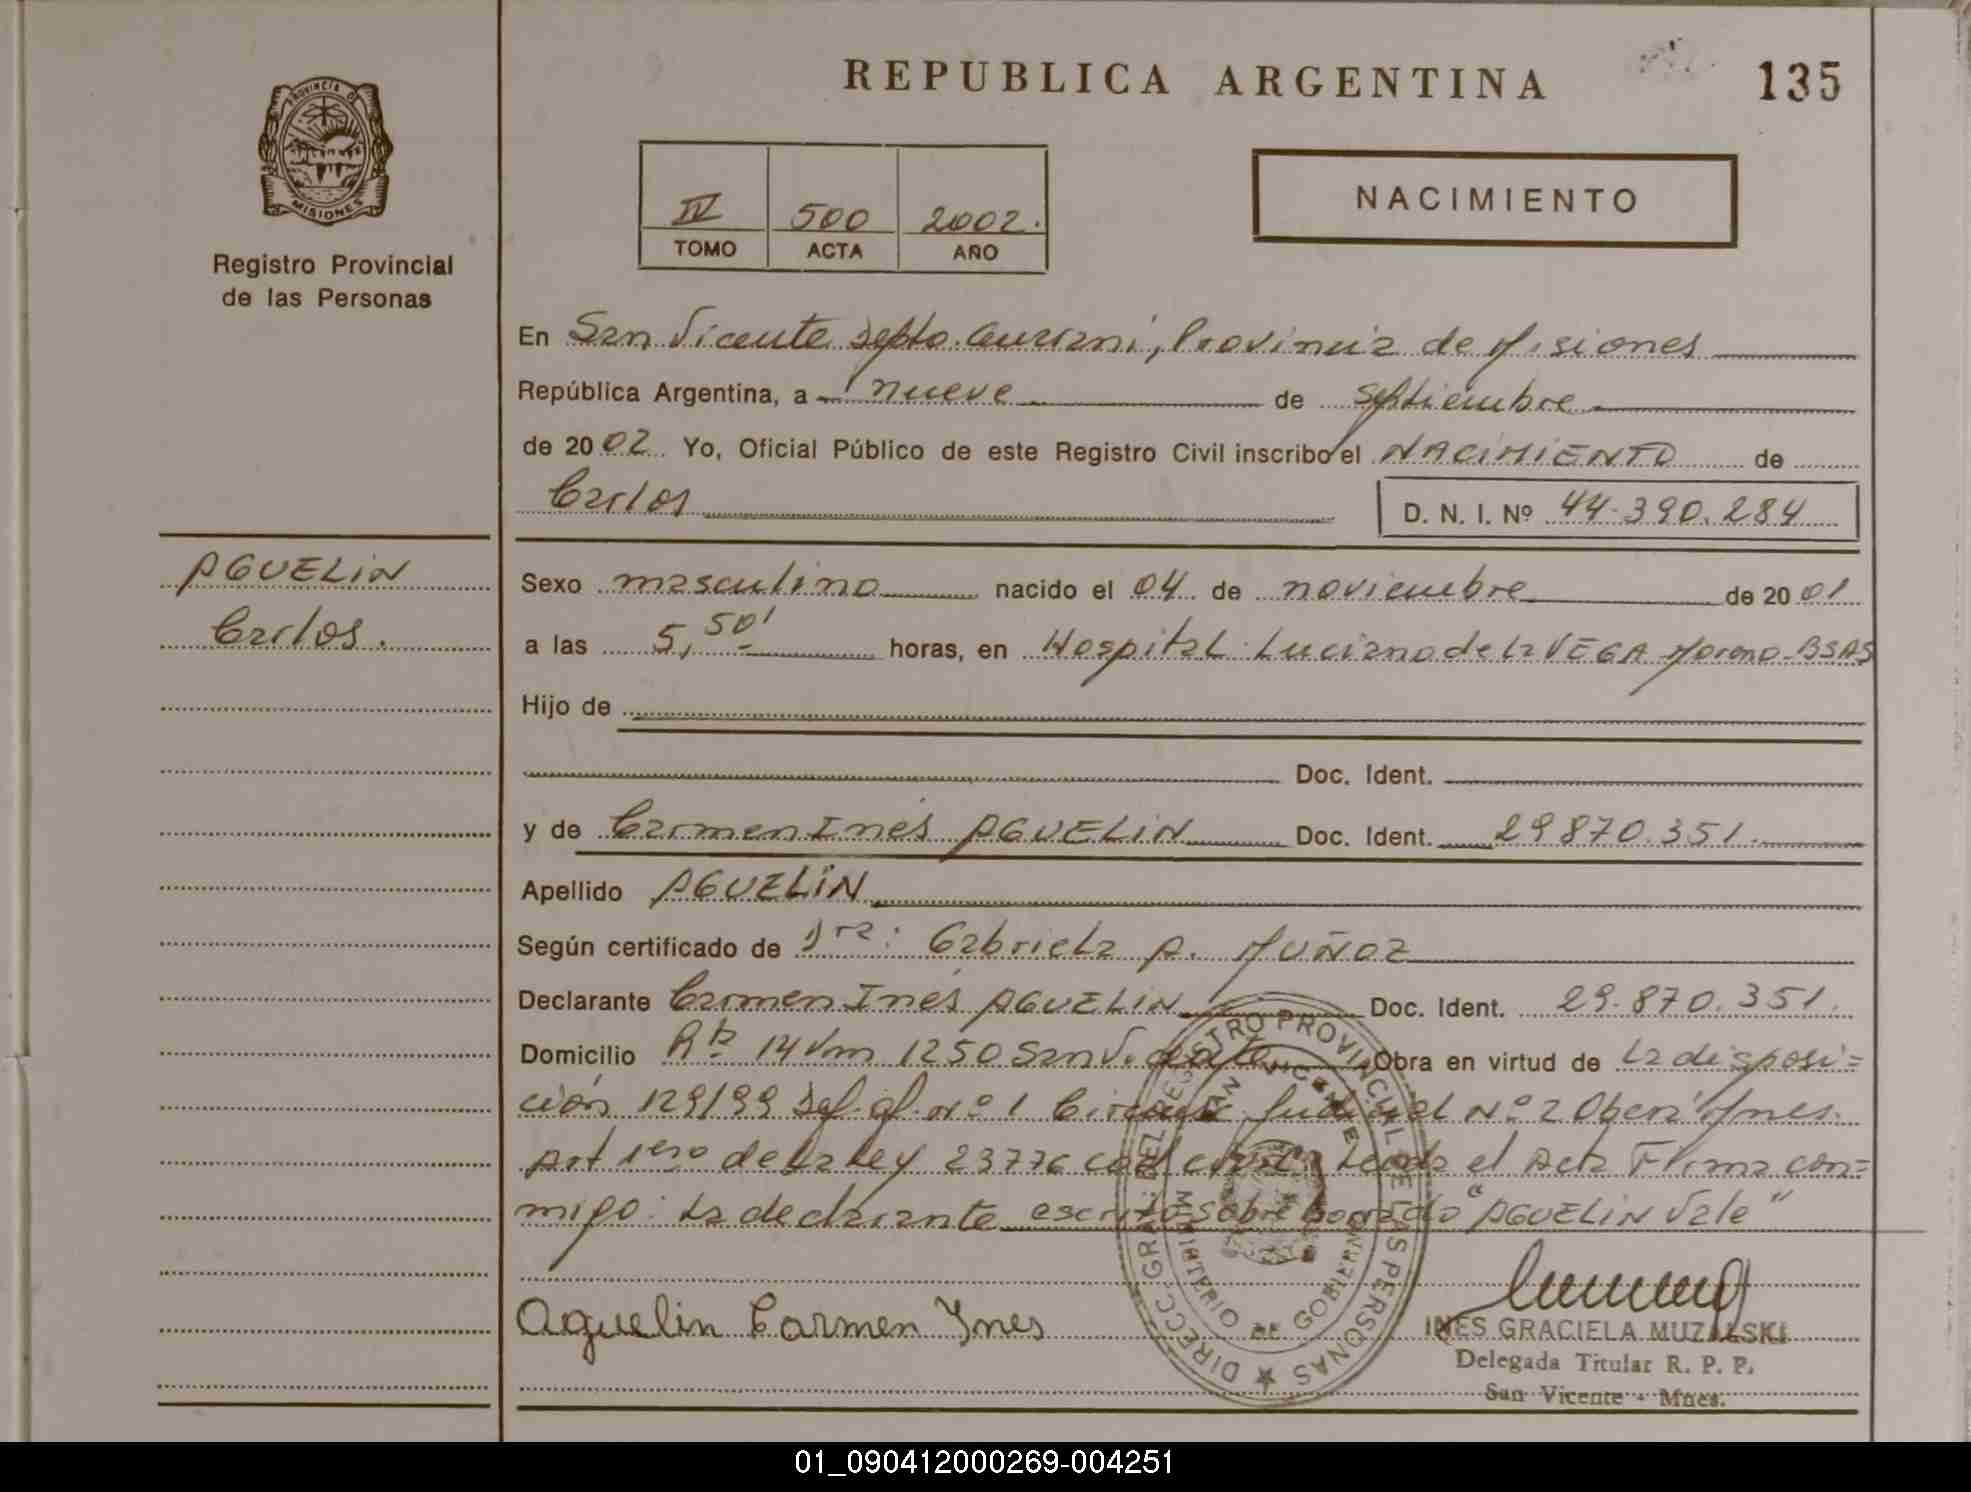 REPUBLICA ARGENTINA
135
PROVINCIA DE
MISIONES
Registro Provincial
de las Personas
IV 500 2002.
TOMO ACTA AÑO
NACIMIENTO
En San Vicente Depto. Guaraní, Provincia de Misiones
República Argentina, a nueve de septiembre
de 2002. Yo, Oficial Público de este Registro Civil inscribo el NACIMIENTO de
Carlos D. N. I. Nº 44.390.284
AGUELIN
Carlos.
Sexo masculino nacido el 04 de noviembre de 2001
a las 5,50' horas, en Hospital Luciano de la VEGA Moreno-BSAS
Hijo de
Doc. Ident.
y de Carmen Inés AGUELIN Doc. Ident. 29.870.351.
Apellido AGUELIN
Según certificado de Dra: Gabriela A. MUÑOZ
Declarante Carmen Inés AGUELIN Doc. Ident. 29.870.351.
Domicilio Rta 14 km 1250 San Vicente Obra en virtud de la disposi=
ción 129/99 Def. of. nº 1 Circunsc. Judicial Nº 2 Oberá Mnes.
Art 1ero de la ley 23776 cod civil. Leída el Acta Firma con=
migo: la declarante escrito sobre borrado "AGUELIN Vale"
Aguelin Carmen Ines
INES GRACIELA MUZALSKI
Delegada Titular R. P. P.
San Vicente - Mnes.
DIRECC. GRAL. DEL REGISTRO PROVINCIAL DE LAS PERSONAS
SAN VICENTE
MINISTERIO DE GOBIERNO
01_090412000269-004251